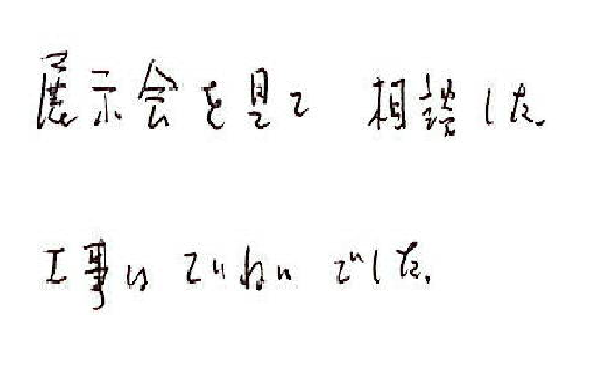 展示会を見て 相談した。
工事は ていねい でした。